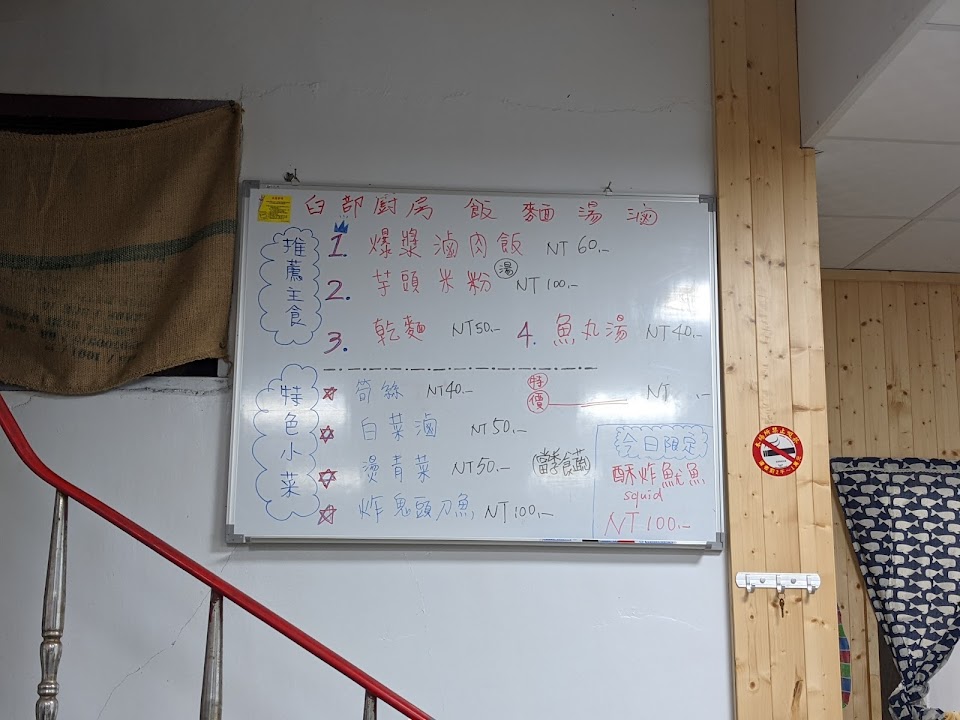 臼部廚房 飯 麵 湯 滷
推薦主食
1. 爆漿滷肉飯 NT 60.-
2. 芋頭米粉 湯 NT 100.-
3. 乾麵 NT50.- 4. 魚丸湯 NT 40.-
特色小菜
筍絲 NT40.- 特價 NT .-
白菜滷 NT 50.-
燙青菜 NT50.- (當季食蔬)
炸鬼頭刀魚 NT 100.-
今日限定
酥炸魷魚
squid
NT 100.-